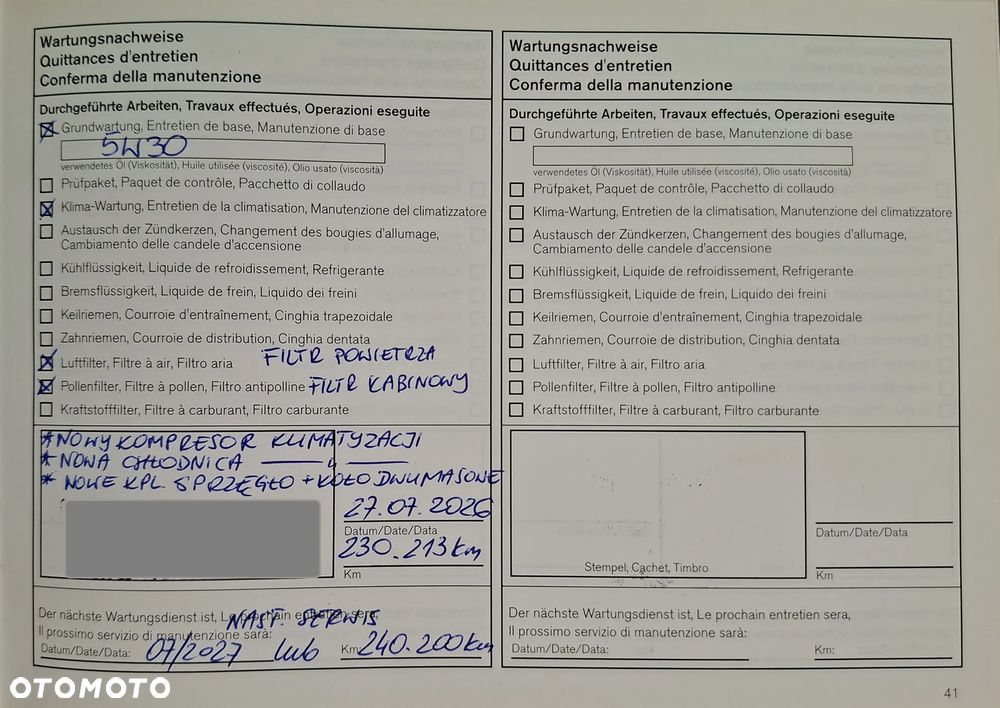 Wartungsnachweise
Quittances d'entretien
Conferma della manutenzione
Durchgeführte Arbeiten, Travaux effectués, Operazioni eseguite
Grundwartung, Entretien de base, Manutenzione di base
5W30
verwendetes Öl (Viskosität), Huile utilisée (viscosité), Olio usato (viscosità)
Prüfpaket, Paquet de contrôle, Pacchetto di collaudo
Klima-Wartung, Entretien de la climatisation, Manutenzione del climatizzatore
Austausch der Zündkerzen, Changement des bougies d'allumage,
Cambiamento delle candele d'accensione
Kühlflüssigkeit, Liquide de refroidissement, Refrigerante
Bremsflüssigkeit, Liquide de frein, Liquido dei freini
Keilriemen, Courroie d'entraînement, Cinghia trapezoidale
Zahnriemen, Courroie de distribution, Cinghia dentata
Luftfilter, Filtre à air, Filtro aria FILTR POWIETRZA
Pollenfilter, Filtre à pollen, Filtro antipolline FILTR KABINOWY
Kraftstofffilter, Filtre à carburant, Filtro carburante
* NOWY KOMPRESOR KLIMATYZACJI
* NOWA CHŁODNICA —— 〃 ——
* NOWE KPL SPRZĘGŁO + KOŁO DWUMASOWE
27.07.2026
Datum/Date/Data
230.213 km
Km
Der nächste Wartungsdienst ist, Le prochain entretien sera,
NAST. SERWIS
Il prossimo servizio di manutenzione sarà:
Datum/Date/Data: 07/2027 lub Km: 240.200 km
Wartungsnachweise
Quittances d'entretien
Conferma della manutenzione
Durchgeführte Arbeiten, Travaux effectués, Operazioni eseguite
Grundwartung, Entretien de base, Manutenzione di base
verwendetes Öl (Viskosität), Huile utilisée (viscosité), Olio usato (viscosità)
Prüfpaket, Paquet de contrôle, Pacchetto di collaudo
Klima-Wartung, Entretien de la climatisation, Manutenzione del climatizzatore
Austausch der Zündkerzen, Changement des bougies d'allumage,
Cambiamento delle candele d'accensione
Kühlflüssigkeit, Liquide de refroidissement, Refrigerante
Bremsflüssigkeit, Liquide de frein, Liquido dei freini
Keilriemen, Courroie d'entraînement, Cinghia trapezoidale
Zahnriemen, Courroie de distribution, Cinghia dentata
Luftfilter, Filtre à air, Filtro aria
Pollenfilter, Filtre à pollen, Filtro antipolline
Kraftstofffilter, Filtre à carburant, Filtro carburante
Stempel, Cachet, Timbro
Datum/Date/Data
Km
Der nächste Wartungsdienst ist, Le prochain entretien sera,
Il prossimo servizio di manutenzione sarà:
Datum/Date/Data: Km:
41
OTOMOTO